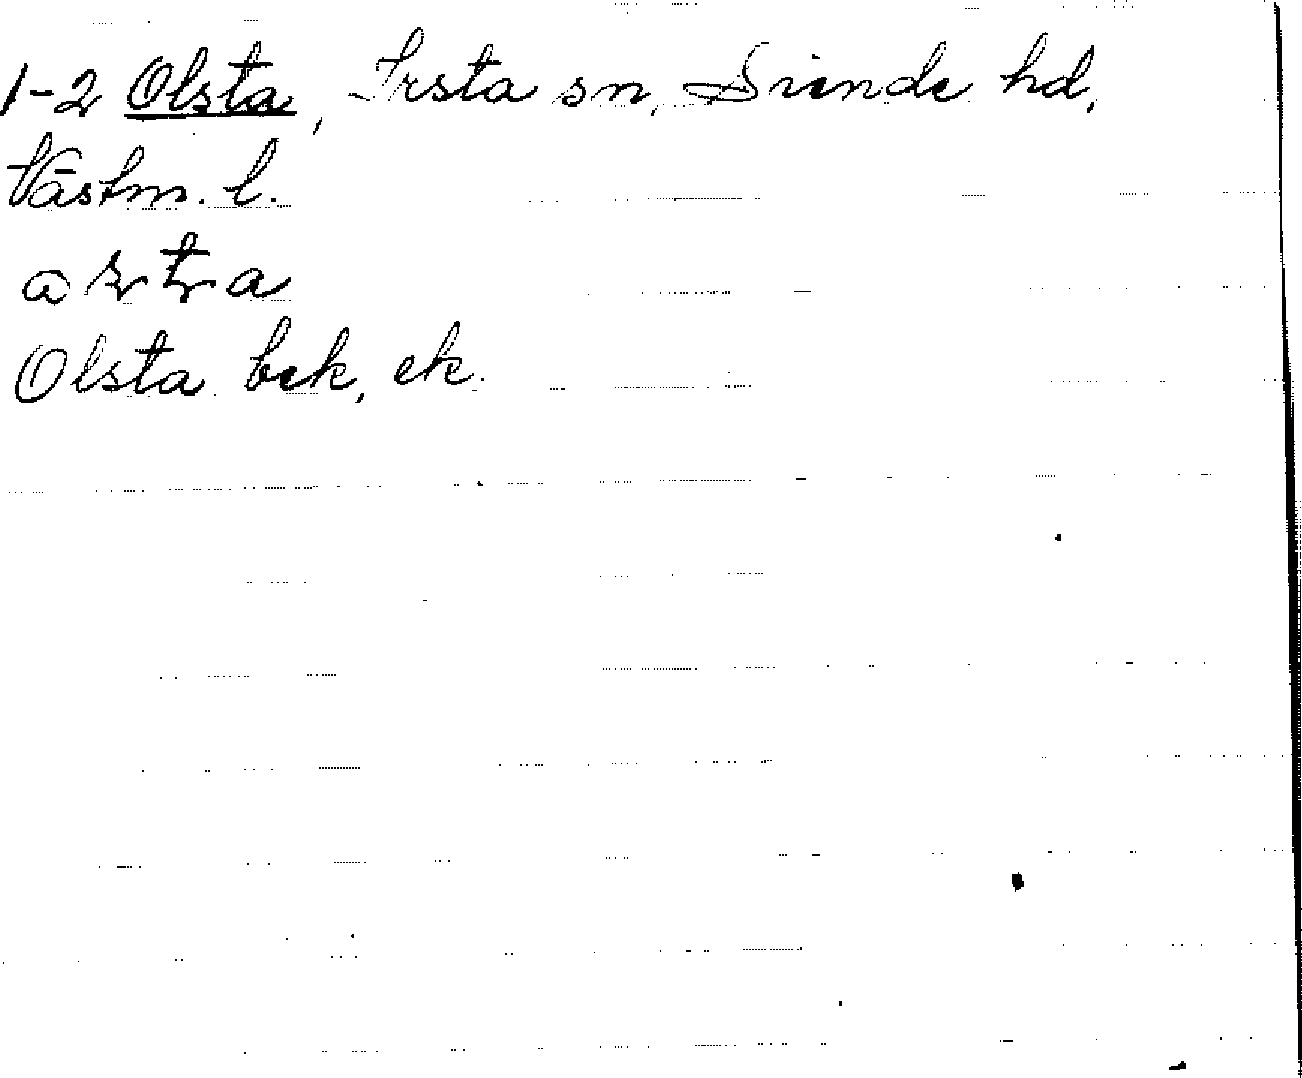 1-2 Olsta, Irsta sn, Siende hd,
Västm. l.
Olsta bek, ek.